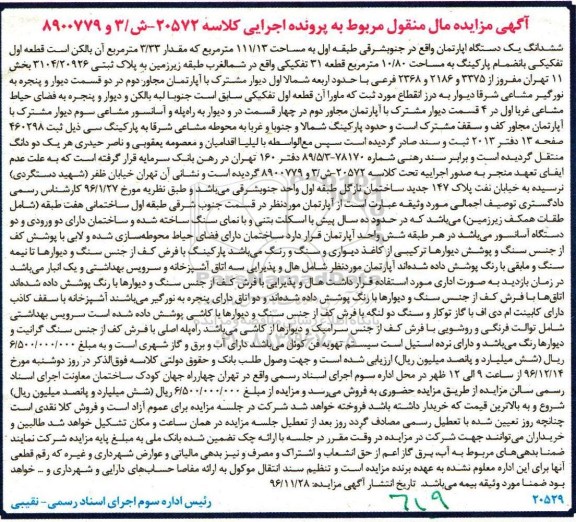 آگهی مزایده مال منقول مربوط به پرونده اجرایی کلاسه ۲۰۵۷۲-ش/۳ و ۸۹۰۰۷۷۹
ششدانگ یک دستگاه اپارتمان واقع در جنوبشرقی طبقه اول به مساحت ۱۱۱/۱۳ مترمربع که مقدار ۳/۳۳ مترمربع آن بالکن است قطعه اول
تفکیکی بانضمام پارکینگ به مساحت ۱۰/۸۰ مترمربع قطعه ۳۱ تفکیکی واقع در شمالغرب طبقه زیرزمین به پلاک ثبتی ۳۱۰۴/۲۰۹۲۶ بخش
۱۱ تهران مفروز از ۳۳۷۵ و ۲۱۸۶ و ۲۳۶۸ فرعی با حدود اربعه شمالا اول دیوار مشترک با آپارتمان مجاور دوم در دو قسمت دیوار و پنجره به
نورگیر مشاعی شرقا دیوار به درز انقطاع مورد ثبت که ماورا آن قطعه اول تفکیکی سابق است جنوبا لبه بالکن و دیوار و پنجره به فضای حیاط
مشاعی غربا اول در ۴ قسمت دیوار مشترک با آپارتمان مجاور دوم در چهار قسمت در و دیوار به راه‌پله و آسانسور مشاعی سوم دیوار مشترک با
آپارتمان مجاور کف و سقف مشترک است و حدود پارکینگ شمالا و جنوبا و غربا به محوطه مشاعی شرقا به پارکینگ سی ذیل ثبت ۴۶۰۲۹۸
صفحه ۱۳ دفتر ۲۰۱۳ ثبت و سند صادر گردیده است سپس مع‌الواسطه با لیلیا اقدامیان و معصومه یعقوبی و ناصر حیدری هر یک دو دانگ
منتقل گردیده است و برابر سند رهنی شماره ۷۸۱۷۰-۸۹/۵/۳ دفتر ۱۶۰ تهران در رهن بانک سرمایه قرار گرفته است که به علت عدم
ایفای تعهد منجر به صدور اجراییه تحت کلاسه ۲۰۵۷۲-ش/۳ و ۸۹۰۰۷۷۹ گردیده است و نشانی آن تهران خیابان ظفر (شهید دستگردی)
نرسیده به خیابان نفت پلاک ۱۴۷ جدید ساختمان نارگل طبقه اول واحد جنوبشرقی می‌باشد و طبق نظریه مورخ ۹۶/۱/۲۷ کارشناس رسمی
دادگستری توصیف اجمالی مورد وثیقه عبارت است از آپارتمان موردنظر در قسمت جنوب شرقی طبقه اول ساختمانی هفت طبقه (شامل
طبقات همکف زیرزمین) می‌باشد که در حدود ده سال پیش با اسکلت بتنی و با نمای سنگ ساخته شده و ساختمان دارای دو ورودی و دو
دستگاه آسانسور می‌باشد در هر طبقه شش واحد آپارتمان قرار دارد ساختمان دارای فضای حیاط محوطه‌سازی شده و لابی با پوشش کف
از جنس سنگ و پوشش دیوارها ترکیبی از کاغذ دیواری و سنگ و رنگ می‌باشد پارکینگ با فرش کف از جنس سنگ و دیوارها تا نیمه
سنگ و مابقی با رنگ پوشش داده شده‌اند آپارتمان موردنظر شامل هال و پذیرایی سه اتاق آشپزخانه و سرویس بهداشتی و یک انبار می‌باشد
در زمان بازدید به صورت اداری مورد استفاده قرار داشت هال و پذیرایی با فرش کف از جنس سنگ و دیوارها با رنگ پوشش داده شده‌اند
اتاق‌ها با فرش کف از جنس سنگ و دیوارها با رنگ پوشش داده شده‌اند و دو اتاق دارای پنجره به نورگیر می‌باشند آشپزخانه با سقف کاذب
دارای کابینت ام دی اف با گاز توکار و سنگ دو لنگه با فرش کف از جنس سنگ و دیوارها با کاشی پوشش داده شده است سرویس بهداشتی
شامل توالت فرنگی و روشویی با فرش کف از جنس سرامیک و دیوارها از کاشی می‌باشد راه‌پله اصلی با فرش کف از جنس سنگ گرانیت و
دیوارها رنگ می‌باشد و دارای نرده استیل است سیستم تهویه فن کوئل می‌باشد دارای آب و برق و گاز شهری است و به مبلغ ۶/۵۰۰/۰۰۰/۰۰۰
ریال (شش میلیارد و پانصد میلیون ریال) ارزیابی شده است و جهت وصول طلب بانک و حقوق دولتی کلاسه فوق‌الذکر در روز دوشنبه مورخ
۹۶/۱۲/۱۴ از ساعت ۹ الی ۱۲ ظهر در محل اداره سوم اجرای اسناد رسمی واقع در تهران چهارراه جهان کودک ساختمان معاونت اجرای اسناد
رسمی سالن مزایده از طریق مزایده حضوری به فروش می‌رسد و مزایده از مبلغ ۶/۵۰۰/۰۰۰/۰۰۰ ریال (شش میلیارد و پانصد میلیون ریال)
شروع و به بالاترین قیمت که خریدار داشته باشد فروخته خواهد شد شرکت در جلسه مزایده برای عموم آزاد است و فروش کلا نقدی است
چنانچه روز تعیین شده با تعطیل رسمی مصادف گردد روز بعد از تعطیل جلسه مزایده در همان ساعت و مکان تشکیل خواهد شد طالبین و
خریداران می‌توانند جهت شرکت در مزایده در وقت مقرر در جلسه با ارائه چک تضمین شده بانک ملی به مبلغ پایه مزایده شرکت نمایند
ضمنا بدهی‌های مربوط به آب، برق گاز اعم از حق انشعاب و اشتراک و مصرف و نیز بدهی مالیاتی و عوارض شهرداری و غیره که رقم قطعی
آنها برای این اداره معلوم نشده به عهده برنده مزایده است و تنظیم سند انتقال موکول به ارائه مفاصا حساب‌های دارایی و شهرداری و ... خواهد
بود ضمنا مورد وثیقه بیمه می‌باشد. تاریخ انتشار آگهی مزایده: ۹۶/۱۱/۲۸
رئیس اداره سوم اجرای اسناد رسمی- نقیبی
۲۰۵۲۹
۶۱۹